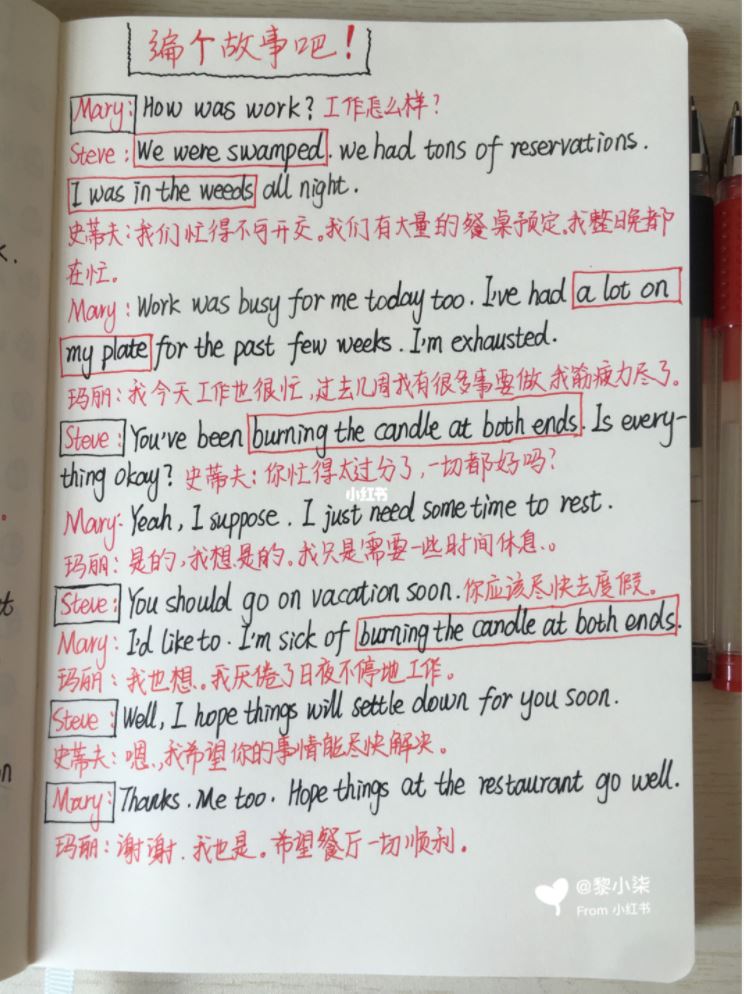 编个故事吧!
Mary: How was work? 工作怎么样?
Steve: We were swamped. we had tons of reservations.
I was in the weeds all night.
史蒂夫:我们忙得不可开交。我们有大量的餐桌预定。我整晚都
在忙。
Mary: Work was busy for me today too. I've had a lot on
my plate for the past few weeks. I'm exhausted.
玛丽:我今天工作也很忙,过去几周我有很多事要做,我筋疲力尽了。
Steve: You've been burning the candle at both ends. Is every-
thing okay? 史蒂夫:你忙得太过分了,一切都好吗?
小红书
Mary: Yeah, I suppose. I just need some time to rest.
玛丽:是的,我想是的。我只是需要一些时间休息。
Steve: You should go on vacation soon. 你应该尽快去度假。
Mary: I'd like to. I'm sick of burning the candle at both ends.
玛丽:我也想。我厌倦了日夜不停地工作。
Steve: Well, I hope things will settle down for you soon.
史蒂夫:嗯,我希望你的事情能尽快解决。
Mary: Thanks. Me too. Hope things at the restaurant go well.
玛丽:谢谢.我也是。希望餐厅一切顺利。
@黎小柒
From 小红书